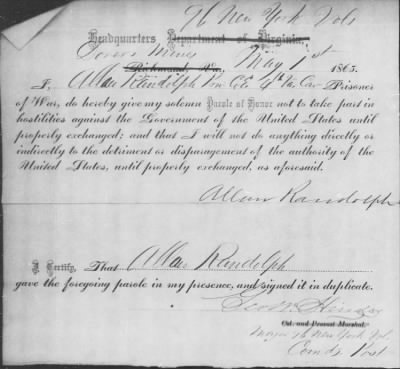 96 New York Vols
Headquarters Department of Virginia,
Richmond, Va., May 1st 1865.
I, Allan Randolph Co. 4th Va Cav Prisoner
of War, do hereby give my solemn Parole of Honor not to take part in
hostilities against the Government of the United States until
properly exchanged; and that I will not do anything directly or
indirectly to the detriment or disparagement of the authority of the
United States, until properly exchanged, as aforesaid.
Allan Randolph
I Certify, That Allan Randolph
gave the foregoing parole in my presence, and signed it in duplicate.
Geo W
Col. and Provost Marshal.
Major 96 New York Vol.
Comdg Post